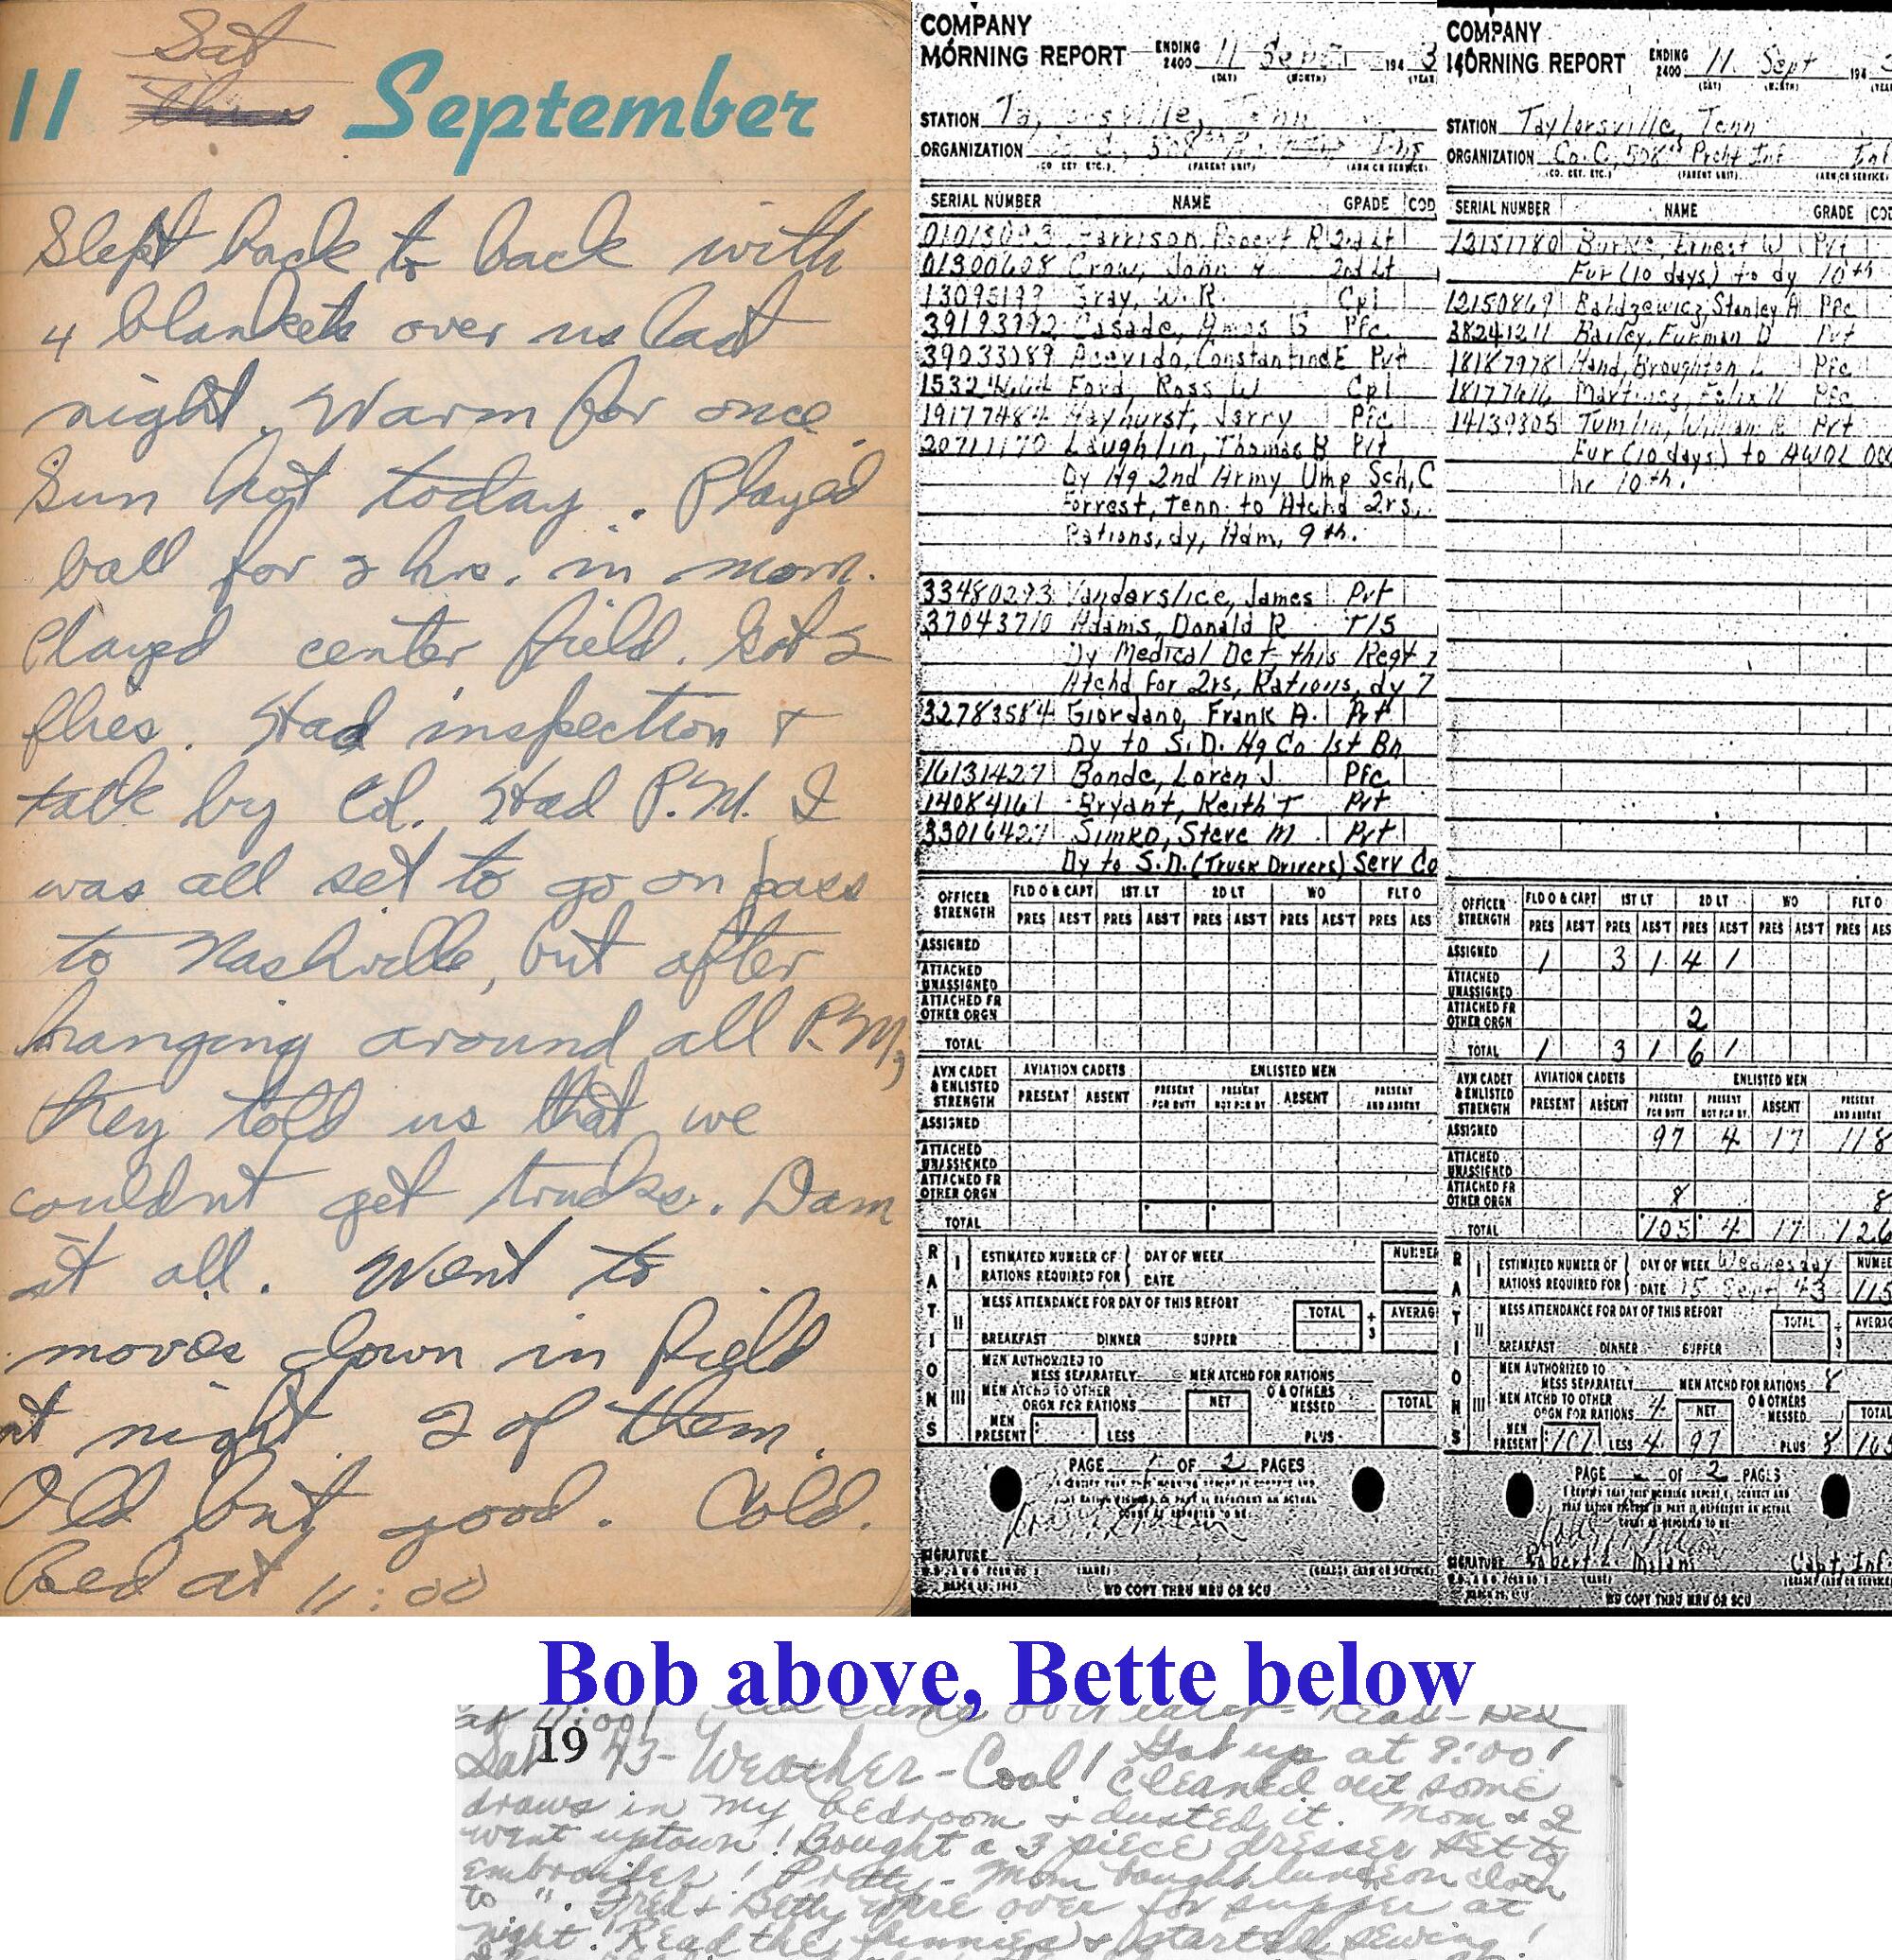 Sat
11 September
Slept back to back with
4 blankets over us last
night. Warm for once.
Sun hot today. Played
ball for 2 hrs. in morn.
Played center field. Got 2
flies. Had inspection &
talk by Col. Had P.M. I
was all set to go on pass
to Nashville, but after
hanging around all P.M,
they told us that we
couldnt get trucks. Dam
it all. Went to
movies down in field
at night. 2 of them.
Old but good. Cold.
Bed at 11:00
COMPANY
MORNING REPORT ENDING 2400 11 Sept 194 3
(DAY) (MONTH) (YEAR
STATION Taylorsville, Tenn
ORGANIZATION 508
(CO. DET. ETC.) (PARENT UNIT) (ARM OR SERVICE)
SERIAL NUMBER NAME GRADE COD
Harrison, Robert R 2nd Lt
01300628 Crow, John 2nd Lt
13095199 Gray, W. R. Cpl
39193792 Casade, Amos G Pfc
39033089 Acevido, Constantino E Pvt
Ford, Ross W Cpl
19177484 Hayhurst, Jerry Pfc
20711170 Laughlin, Thomas B Pvt
Dy Hq 2nd Army Ump Sch, C
Forrest, Tenn. to Atchd 2rs,
Rations, dy, Adm, 9th.
33480293 Vanderslice, James Pvt
37043710 Adams, Donald R T/5
Dy Medical Det, this Regt
Atchd for 2rs, Rations, dy 7
32783584 Giordano, Frank A. Pvt
Dy to S.D. Hq Co 1st Bn
16131427 Bonde, Loren J. Pfc
14084161 Bryant, Keith T Pvt
33016427 Simko, Steve M Pvt
Dy to S.D. (Truck Drivers) Serv Co
OFFICER STRENGTH FLD O & CAPT 1ST LT 2D LT WO FLT O
PRES ABS'T PRES ABS'T PRES ABS'T PRES ABS'T PRES ABS
ASSIGNED
ATTACHED UNASSIGNED
ATTACHED FR OTHER ORGN
TOTAL
AVN CADET & ENLISTED STRENGTH AVIATION CADETS ENLISTED MEN
PRESENT ABSENT PRESENT FOR DUTY PRESENT NOT FOR DY ABSENT PRESENT AND ABSENT
ASSIGNED
ATTACHED UNASSIGNED
ATTACHED FR OTHER ORGN
TOTAL
RATIONS
I ESTIMATED NUMBER OF RATIONS REQUIRED FOR DAY OF WEEK NUMBER
DATE
II MESS ATTENDANCE FOR DAY OF THIS REPORT TOTAL ÷ 3 AVERAG
BREAKFAST DINNER SUPPER
III MEN AUTHORIZED TO MESS SEPARATELY MEN ATCHD FOR RATIONS
MEN ATCHD TO OTHER ORGN FOR RATIONS NET O & OTHERS MESSED TOTAL
MEN PRESENT LESS PLUS
PAGE 1 OF 2 PAGES
SIGNATURE
(NAME) (GRADE) (ARM OR SERVICE)
WD COPY THRU MRU OR SCU
COMPANY
MORNING REPORT ENDING 2400 11 Sept 194 3
(DAY) (MONTH) (YEA
STATION Taylorsville, Tenn
ORGANIZATION Co. C, 508th Prcht Inf Inf
(CO. DET. ETC.) (PARENT UNIT) (ARM OR SERVICE)
SERIAL NUMBER NAME GRADE COD
12151780 Burke, Ernest W Pvt
Fur (10 days) to dy 10th
12150869 Bardzewicz, Stanley A Pfc
38241211 Bailey, Furman D Pvt
18187978 Hand, Broughton L Pfc
18177616 Martinez, Felix Pfc
14139305 Tumlin, William R Pvt
Fur (10 days) to AWOL 000
hr 10th.
OFFICER STRENGTH FLD O & CAPT 1ST LT 2D LT WO FLT O
PRES ABS'T PRES ABS'T PRES ABS'T PRES ABS'T PRES ABS
ASSIGNED 1 3 1 4 1
ATTACHED UNASSIGNED
ATTACHED FR OTHER ORGN 2
TOTAL 1 3 1 6 1
AVN CADET & ENLISTED STRENGTH AVIATION CADETS ENLISTED MEN
PRESENT ABSENT PRESENT FOR DUTY PRESENT NOT FOR DY ABSENT PRESENT AND ABSENT
ASSIGNED 97 4 17 118
ATTACHED UNASSIGNED
ATTACHED FR OTHER ORGN 8 8
TOTAL 105 4 17 126
RATIONS
I ESTIMATED NUMBER OF RATIONS REQUIRED FOR DAY OF WEEK Wednesday NUMBE
DATE 15 Sept 43 115
II MESS ATTENDANCE FOR DAY OF THIS REPORT TOTAL ÷ 3 AVERAG
BREAKFAST DINNER SUPPER
III MEN AUTHORIZED TO MESS SEPARATELY MEN ATCHD FOR RATIONS 8
MEN ATCHD TO OTHER ORGN FOR RATIONS 4 NET O & OTHERS MESSED TOTAL
MEN PRESENT 101 LESS 4 97 PLUS 8 105
PAGE 2 OF 2 PAGES
I CERTIFY THAT THIS MORNING REPORT IS CORRECT AND
THAT RATION FIGURES IN PART III REPRESENT AN ACTUAL
COUNT AS REPORTED TO ME
SIGNATURE Robert L. Milam Capt, Inf
(NAME) (GRADE) (ARM OR SERVICE)
WD COPY THRU MRU OR SCU
Bob above, Bette below
at 11:00! came over later - Read - Bed
Sat 19 43 - Weather - Cool! Got up at 9:00!
Cleaned out some
draws in my bedroom & dusted it. Mom & I
went uptown! Bought a 3 piece dresser set to
embroider! Pretty - Mom bought luncheon cloth
to ". Fred & Betty were over for supper at
night! Read the funnies & started sewing!